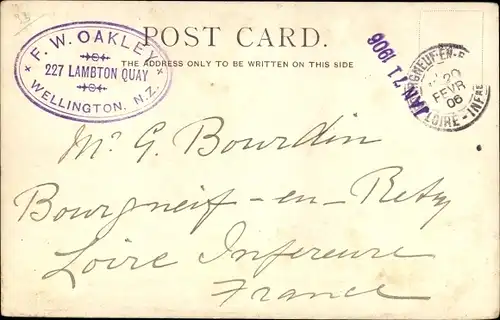 POST CARD.
THE ADDRESS ONLY TO BE WRITTEN ON THIS SIDE
F. W. OAKLEY
227 LAMBTON QUAY
WELLINGTON, N.Z.
JAN 17 1906
BOURGNEUF-EN-R
20
FEVR
06
LOIRE-INFRE
Mr. G. Bourdin
Bourgneif-en-Retz
Loire Infereure
France